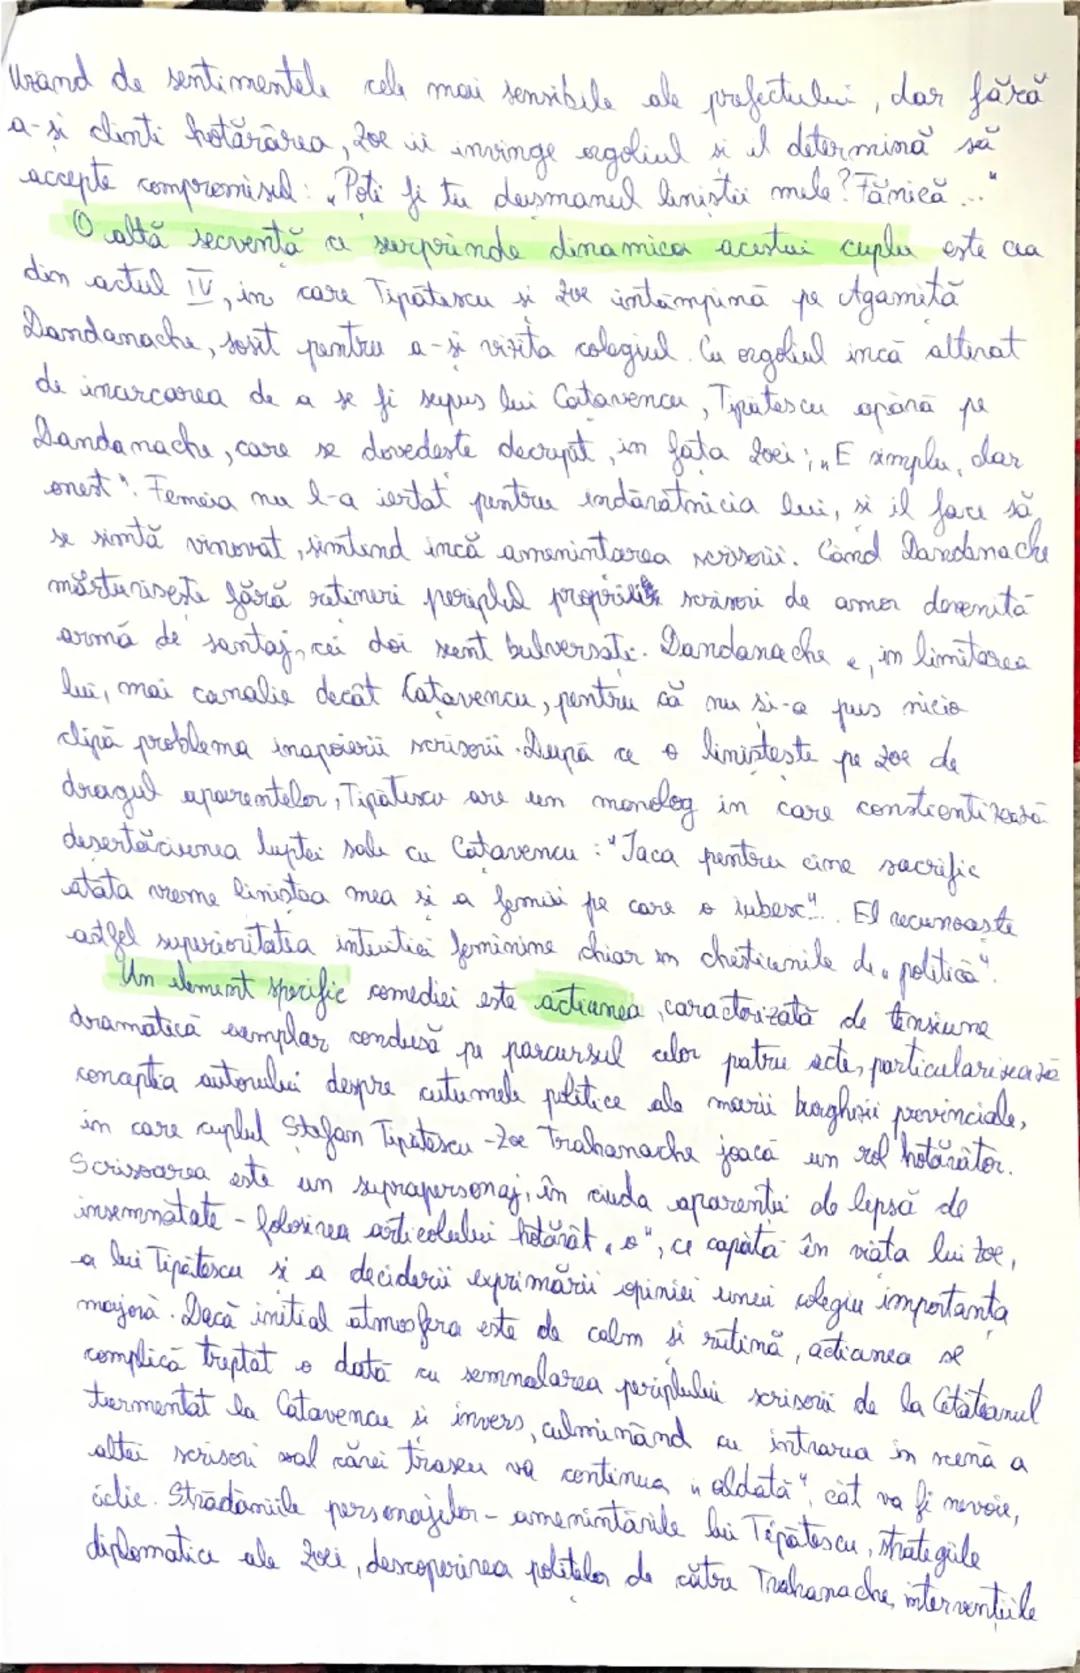 Uzând de sentimentele cele mai sensibile ale prefectului, dar fără
a-și clinti hotărârea, Zoe îi învinge orgoliul și îl determină să
accepte compromisul: „Poți fi tu dușmanul liniștii mele? Fănică..."
O altă secvență ce surprinde dinamica acestui cuplu este cea
din actul IV, în care Tipătescu și Zoe întâmpină pe Agamiță
Dandanache, sosit pentru a-și vizita colegiul. Cu orgoliul încă alterat
de încercarea de a se fi supus lui Cațavencu, Tipătescu apără pe
Dandanache, care se dovedește decrepit, în fața Zoei: „E simplu, dar
onest". Femeia nu l-a iertat pentru îndărătnicia lui, și îl face să
se simtă vinovat, simțind încă amenințarea scrisorii. Când Dandanache
mărturisește fără rețineri periplul propriei scrisori de amor devenită
armă de șantaj, cei doi sunt bulversați. Dandanache e, în limitarea
lui, mai canalie decât Cațavencu, pentru că nu și-a pus nicio
clipă problema înapoierii scrisorii. După ce o liniștește pe Zoe de
dragul aparentelor, Tipătescu are un monolog în care conștientizează
deșertăciunea luptei sale cu Cațavencu: "Iaca pentru cine sacrific
atâta vreme liniștea mea și a femeii pe care o iubesc".. El recunoaște
astfel superioritatea intuiției feminine chiar în chestiunile de „politică".
Un element specific comediei este acțiunea, caracterizată de tensiune
dramatică exemplar condusă pe parcursul celor patru acte, particularizează
concepția autorului despre cutumele politice ale marii burghezii provinciale,
în care cuplul Ștefan Tipătescu - Zoe Trahanache joacă un rol hotărâtor.
Scrisoarea este un suprapersonaj, în ciuda aparenței de lipsă de
însemnătate - folosirea articolului hotărât „o", ce capătă în viața lui Zoe,
a lui Tipătescu și a deciderii exprimării opiniei unui colegiu importanța
majoră. Dacă inițial atmosfera este de calm și rutină, acțiunea se
complică treptat o dată cu semnalarea periplului scrisorii de la Cetățeanul
turmentat la Cațavencu și invers, culminând cu intrarea în scenă a
altei scrisori al cărei traseu va continua „aldată", cât va fi nevoie,
ciclic. Strădaniile personajelor - amenințările lui Tipătescu, strategiile
diplomatice ale Zoei, descoperirea polițelor de către Trahanache, intervențiile